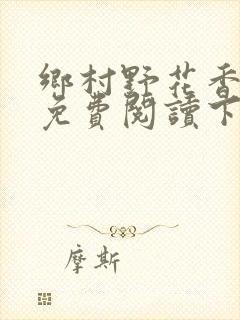 鄉村野花香
免費閱讀下
摩斯